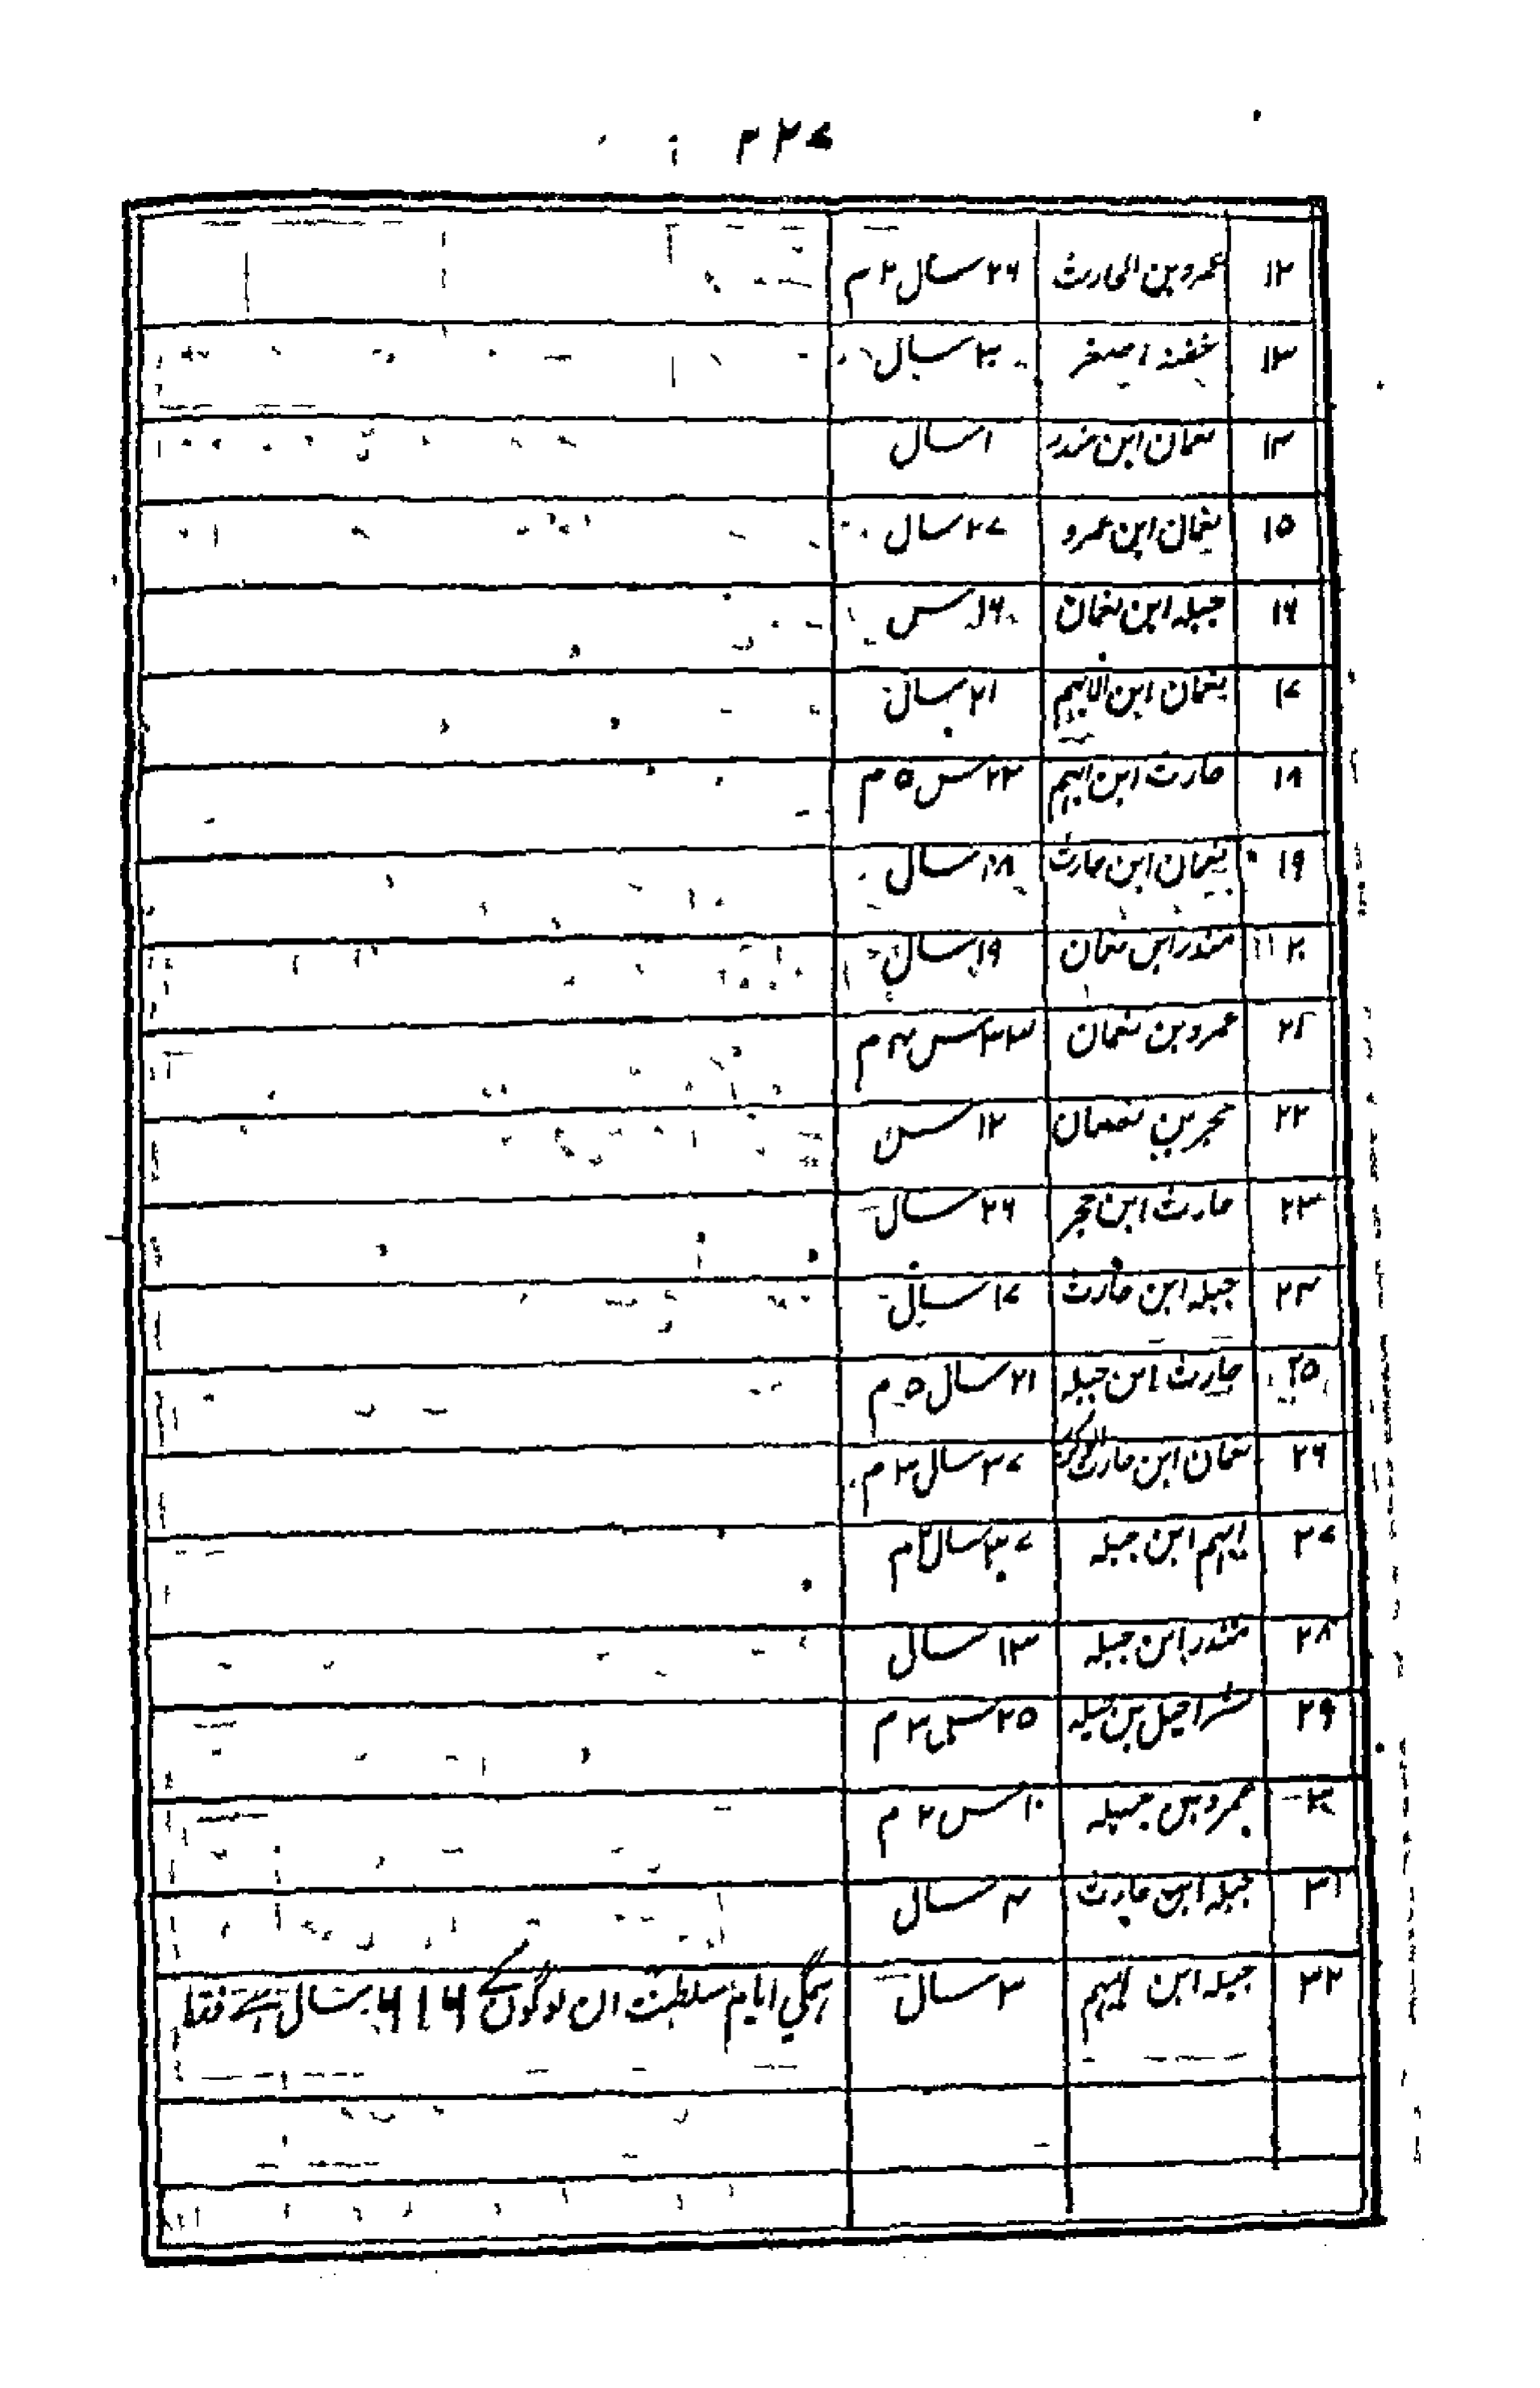 ۲۲۷
۱۲ عمرو بن الحارث ۲۶ سال ۲ م
۱۳ جفنہ اصغر ۳۰ سال
۱۴ نعمان ابن منذر ۱ سال
۱۵ نعمان ابن عمرو ۲۷ سال
۱۶ جبلہ ابن نعمان ۱۶ س
۱۷ نعمان ابن الایہم ۲۱ سال
۱۸ حارث ابن ایہم ۲۲ س ۵ م
۱۹ نعمان ابن حارث ۱۸ سال
۲۰ منذر ابن نعمان ۱۹ سال
۲۱ عمرو بن نعمان ۳۳ س ۴ م
۲۲ حجر بن نعمان ۱۲ س
۲۳ حارث ابن حجر ۲۶ سال
۲۴ جبلہ ابن حارث ۱۷ سال
۲۵ حارث ابن جبلہ ۲۱ سال ۵ م
۲۶ نعمان ابن حارث ۳۷ سال ۳ م
۲۷ ایہم ابن جبلہ ۲۷ سال ۲ م
۲۸ منذر ابن جبلہ ۱۳ سال
۲۹ شراحیل بن جبلہ ۲۵ س ۳ م
۳۰ عمرو بن جبلہ ۱۰ س ۲ م
۳۱ جبلہ ابن حارث ۴ سال
۳۲ جبلہ ابن ایہم ۳ سال ہمگی ایام سلطنت ان لوگوں کے ۶۱۶ سال ہے فقط